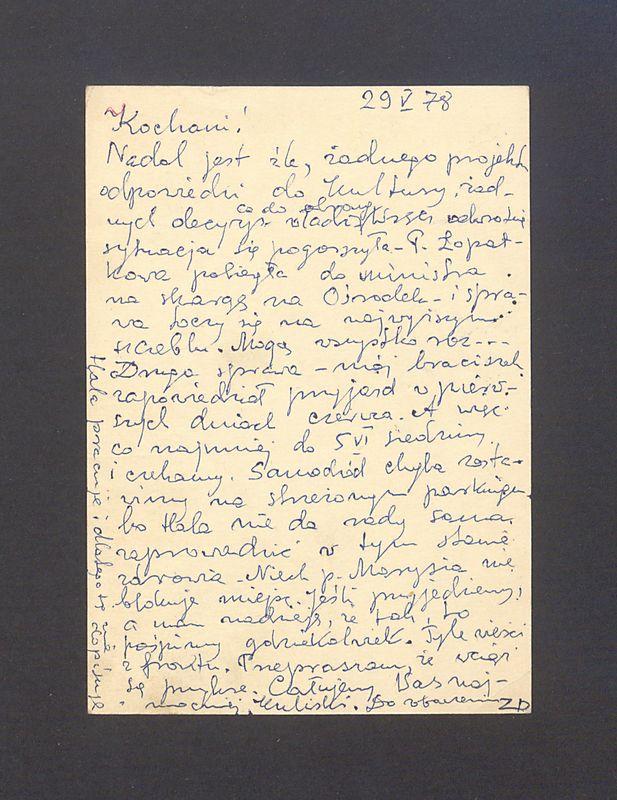 29 V 78
Kochani!
Nadal jest źle, żadnego projektu
odpowiedzi do Kultury, żad-
nych decyzji co do obrony
sytuacja się pogorszyła - P. Łopat-
kowa pobiegła do ministra
na skargę na Ośrodek - i spra-
wa toczy się na najwyższym
szczeblu. Mogą wszystko roz---
Druga sprawa - mój braciszek
zapowiedział przyjazd w pierw-
szych dniach czerwca. A więc
co najmniej do 5 VI siedzimy
i czekamy. Samochód chyba zosta-
wimy na strzeżonym parkingu
bo Hala nie da rady sama
zaprowadzić w tym stanie
zdrowia - Niech p. Marysia nie
blokuje miejsc. Jeśli przyjedziemy,
a mam nadzieję, że tak, to
pośpimy gdziekolwiek. Tyle wieści
z frontu. Przepraszam, że wciąż
są przykre. Całujemy Was naj-
mocniej, Kuliski. Do zobaczenia ZD
Hala pracuje i dlatego się nie dopisuje